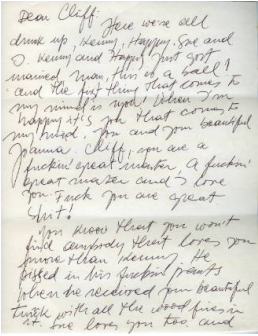 Dear Cliff.
Here we're all
drunk up, Kenny, Happy. Sue and
I. Kenny and Happy just got
married man, this is a ball!
and the first thing that comes to
my mind is you! When I'm
happy it's you that comes to
my mind. You and your beautiful
Joanna. Cliff, you are a
fuckin' great master, a fuckin'
great maker and I love
you. Fuck you are great
Shit!
You know that you won't
find anybody that loves you
more than Kenny. He
pissed in his fuckin' pants
when he received your beautiful
with all the wood fires in
it. Sue loves you too. and